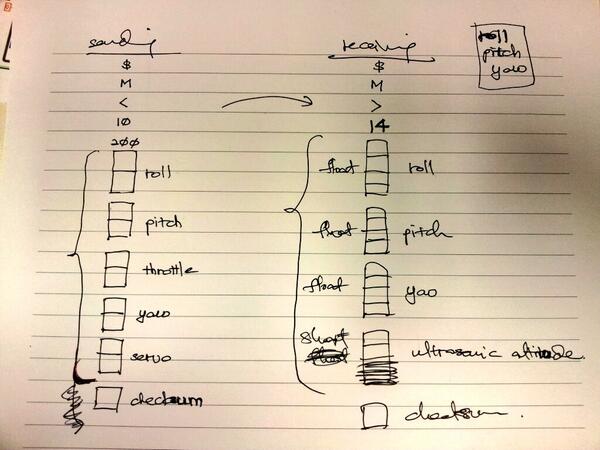 sending
$
M
<
10
200
roll
pitch
throttle
yaw
servo
checksum
receiving
$
M
>
14
float roll
float pitch
float yao
short ultrasonic altitude.
checksum.
roll
pitch
yaw